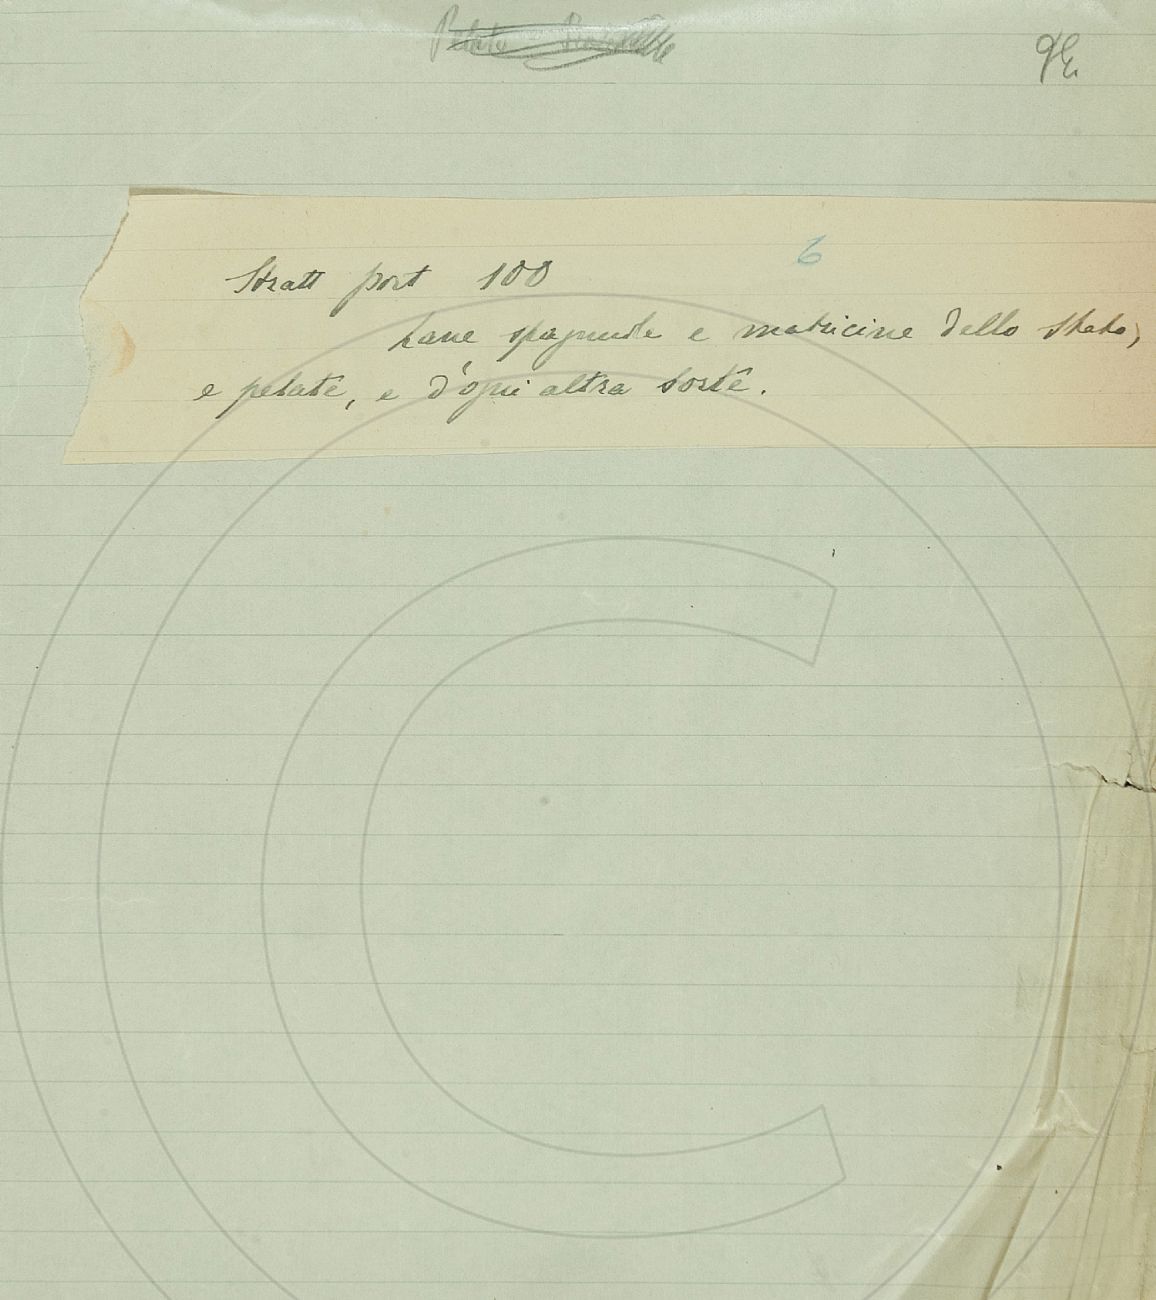 Stratt port 100
6
Lane spagnuole e matricine dello Stato,
e pelate, e d'ogni altra sorte.